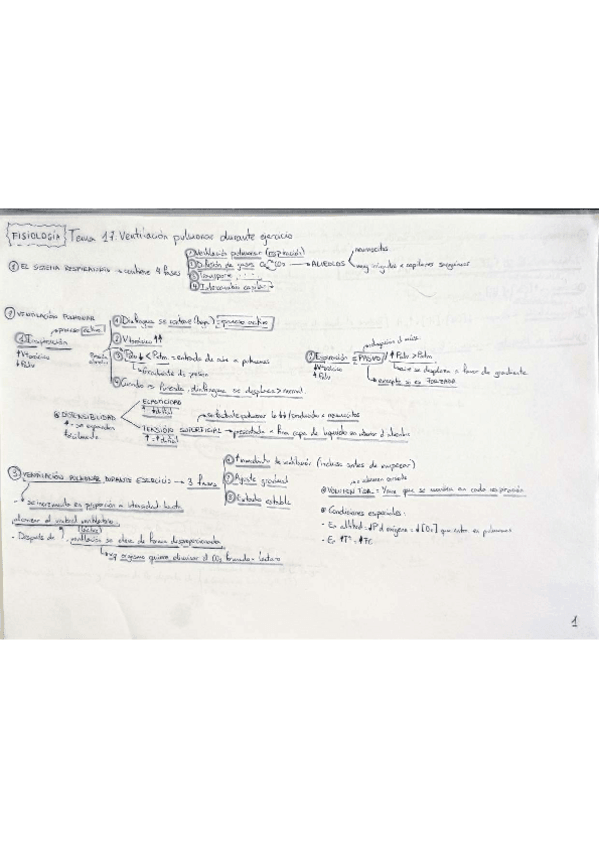 FISIOLOGÍA Tema 17. Ventilación pulmonar durante ejercicio
① EL SISTEMA RESPIRATORIO → contiene 4 fases
① Ventilación pulmonar (ESPIRACIÓN)
② Difusión de gases O₂ CO₂ → ALVEOLOS
neumocitos
muy irrigados capilares sanguíneos
③ Transporte
④ Intercambio capilar
② VENTILACIÓN PULMONAR
proceso activo
① Inspiración
↑V torácico
↓Pulm
① Diafragma se contrae (baja) proceso activo
② V torácico ↑↑
③ Pulm < Patm = entrada de aire a pulmones
gradiente de presión
④ Cuando es forzada, diafragma se desplaza > normal
② Espiración = PASIVO
↓V torácico
↑Pulm
↑ Pulm > Patm
aire se desplaza a favor de gradiente
excepto si es FORZADA
DISTENSIBILIDAD
↑ = se expanden fácilmente
ELASTICIDAD
↑ = difícil
TENSIÓN SUPERFICIAL → presentada x fina capa de líquido en interior d alveolos
↑ = difícil
③ VENTILACIÓN PULMONAR DURANTE EJERCICIO → 3 fases
① ↑ inmediato de ventilación (incluso antes de empezar)
② Ajuste gradual
③ Estado estable
- se incrementa en proporción a intensidad hasta
alcanzar el umbral ventilatorio.
(láctico)
- Después de ↑, ventilación se eleva de forma desproporcionada
xq organismo quiere eliminar el CO₂ formado x lactato
VOLUMEN TIDAL = Vaire que se moviliza en cada respiración
Condiciones especiales:
- En altitud = ↓P d oxígeno = ↓[O₂] que entra en pulmones
- En ↑Tª = ↑FC
1